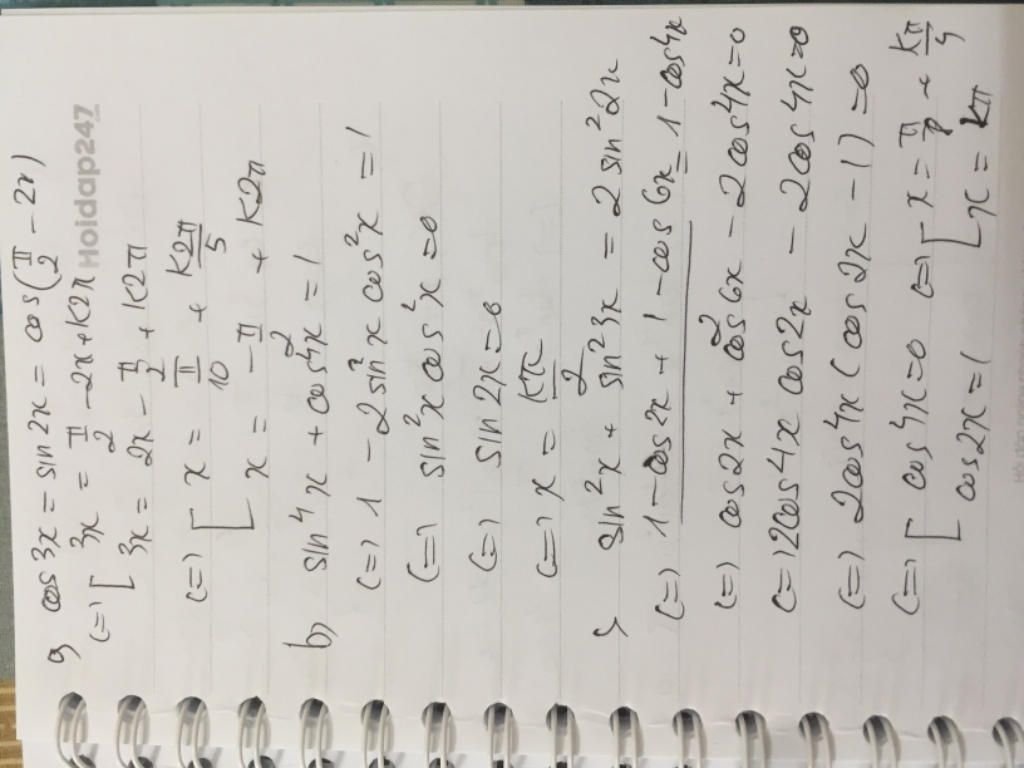 a) cos3x = sin2x = cos(π/2 - 2x)
Hoidap247
(=) [ 3x = π/2 - 2x + k2π
3x = 2x - π/2 + k2π
(=) [ x = π/10 + k2π/5
x = -π/2 + k2π
b) sin⁴x + cos⁴x = 1
(=) 1 - 2sin²x cos²x = 1
(=) sin²x cos²x = 0
(=) sin2x = 0
(=) x = kπ/2
c) sin²x + sin²3x = 2sin²2x
(=) (1 - cos2x + 1 - cos6x)/2 = 1 - cos4x
(=) cos2x + cos6x - 2cos4x = 0
(=) 2cos4x cos2x - 2cos4x = 0
(=) 2cos4x(cos2x - 1) = 0
(=) [ cos4x = 0 (=) [ x = π/8 + kπ/4
cos2x = 1 [ x = kπ